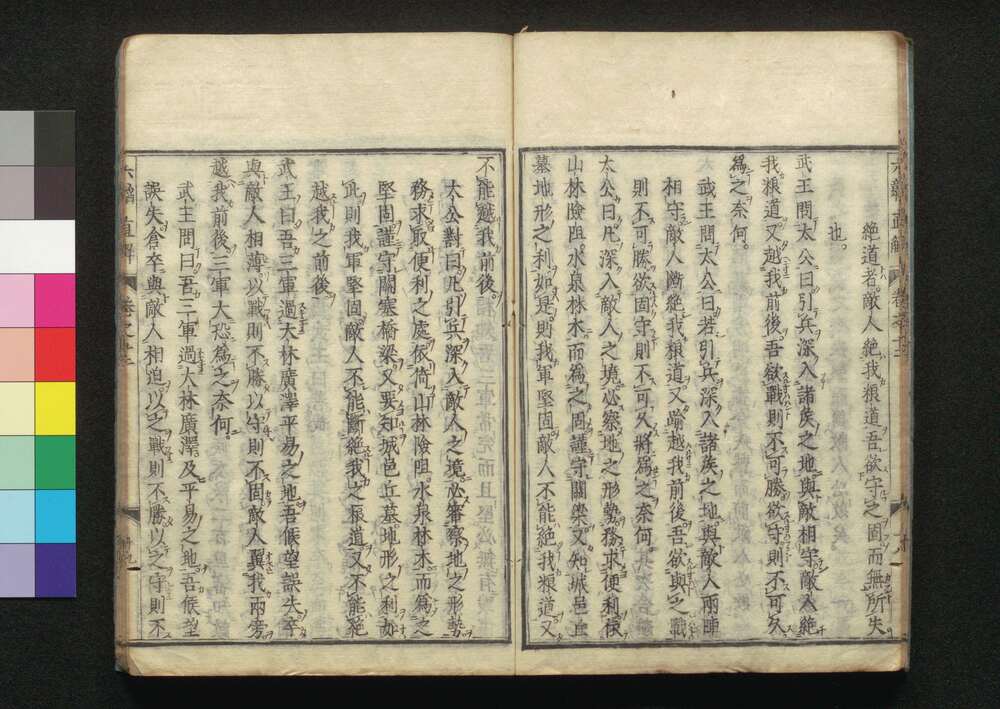 絶道者敵人絶我粮道吾欲守之固而無所失
也。
武王問太公曰引兵深入諸矦之地與敵相守敵人絶
我粮道又越我前後吾欲戰則不可勝欲守則不可久
爲之奈何。
武王問太公曰若引兵深入諸矦之地與敵人兩陣
相守敵人断絶我粮道又踰越我前後吾欲與之戰
則不可勝欲固守則不可久將爲之奈何。
太公曰凡深入敵人之境必察地之形勢務求便利依
山林險阻水泉林木而爲之固謹守關梁又知城邑丘
墓地形之利如是則我軍堅固敵人不能絶我粮道又
不能越我前後。
太公對曰凡引兵深入敵人之境必審察地之形勢
務求取便利之處依倚山林險阻水泉林木而爲之
堅固謹守關塞橋梁又要知城邑丘墓地形之利如
此則我軍堅固敵人不能斷絶我之粮道又不能絶
越我之前後
武王曰吾三軍過大林廣澤平易之地吾候望誤失卒
與敵人相薄以戰則不勝以守則不固敵人翼我兩旁
越我前後三軍大恐爲之奈何。
武王問曰吾三軍過大林廣澤及平易之地吾候望
誤失倉卒與敵人相迫以之戰則不勝以之守則不
六韜直解